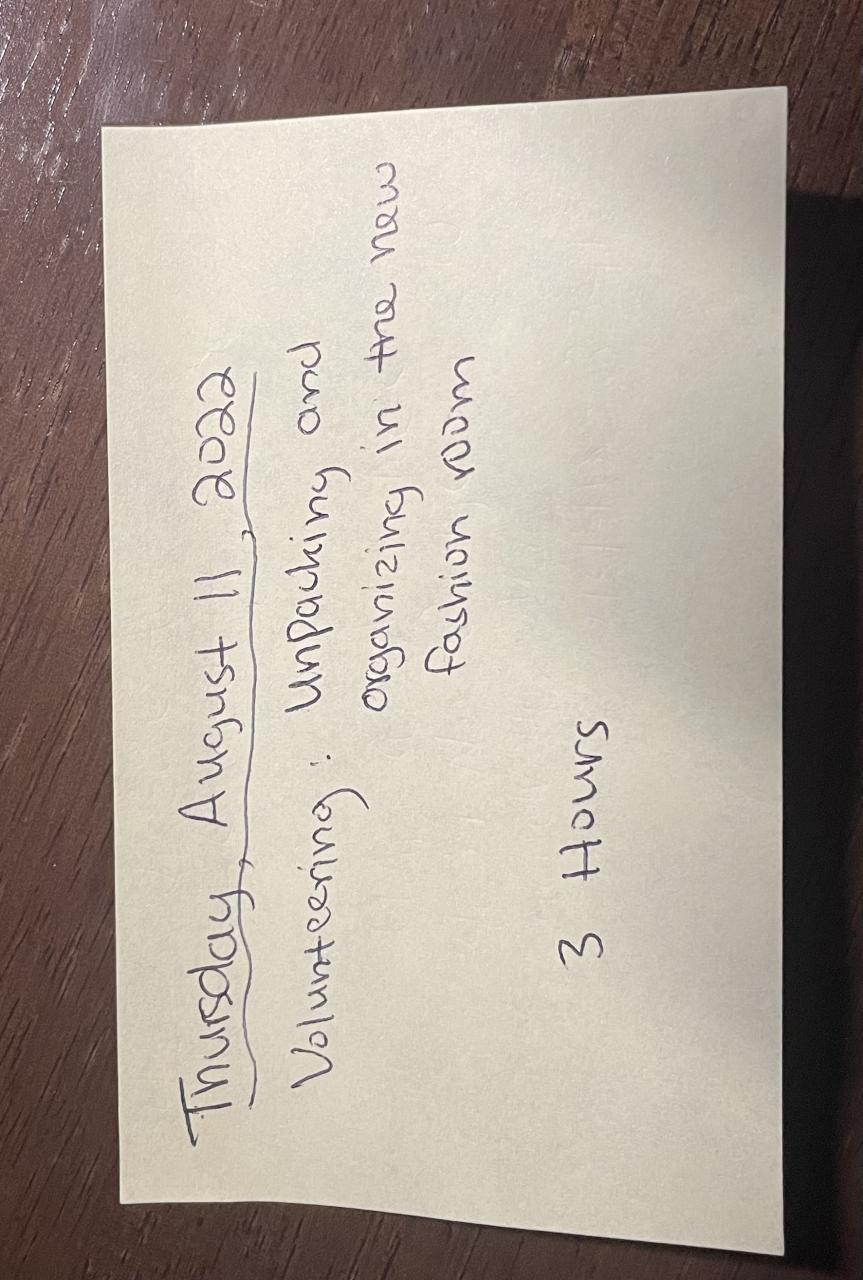 Thursday, August 11, 2022
Volunteering: Unpacking and
organizing in the new
fashion room
3 Hours